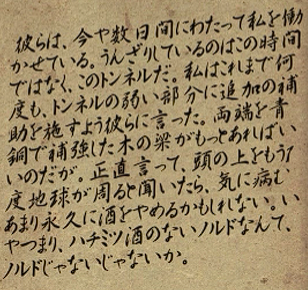 彼らは、今や数日間にわたって私を働
かせている。うんざりしているのはこの時間
ではなく、このトンネルだ。私はこれまで何
度も、トンネルの弱い部分に追加の補
助を施すよう彼らに言った。両端を青
銅で補強した木の梁がもっとあればい
いのだが。正直言って、頭の上をもう1
度地球が周ると聞いたら、気に病む
あまり永久に酒をやめるかもしれない。い
やつまり、ハチミツ酒のないノルドなんて、
ノルドじゃないじゃないか。